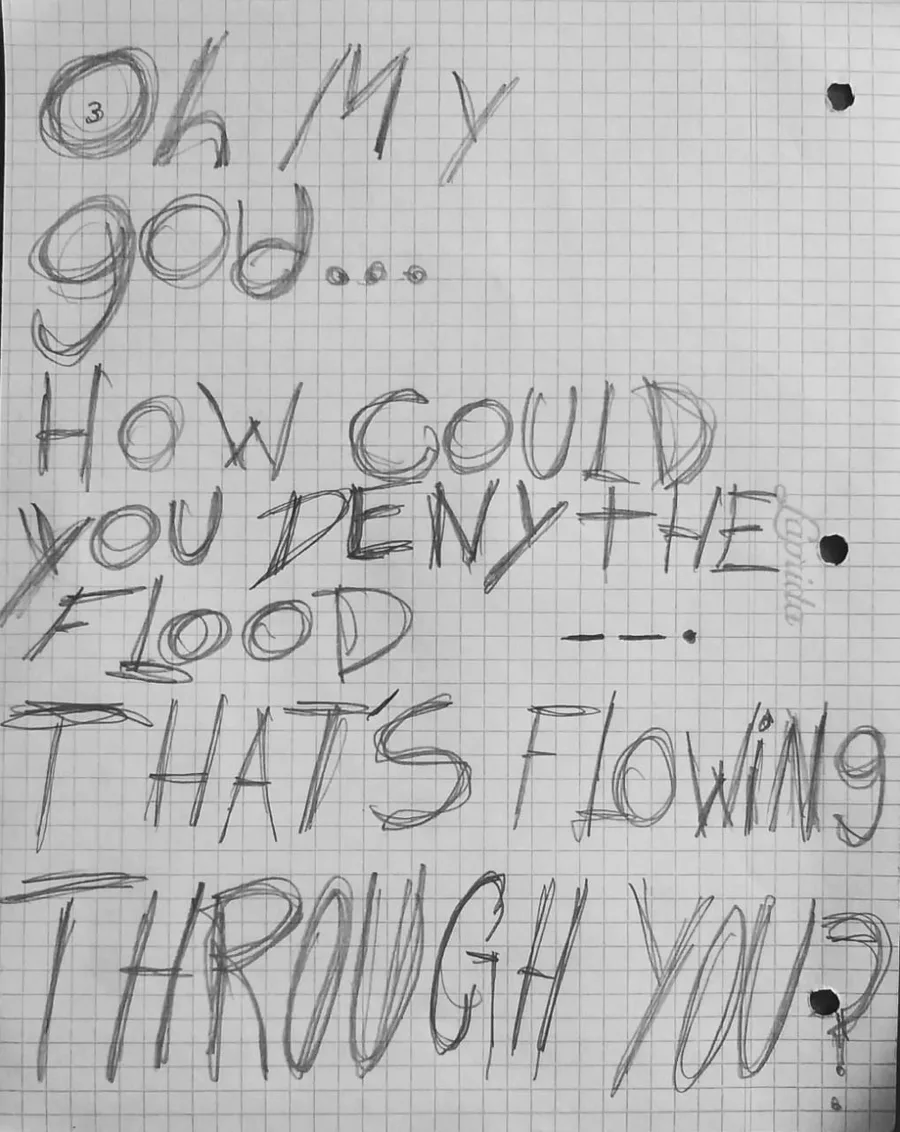 3
Oh My
god...
HOW COULD
YOU DENY THE
FLOOD — —.
THAT'S FLOWiNg
THROUGH YOU?
Laviida